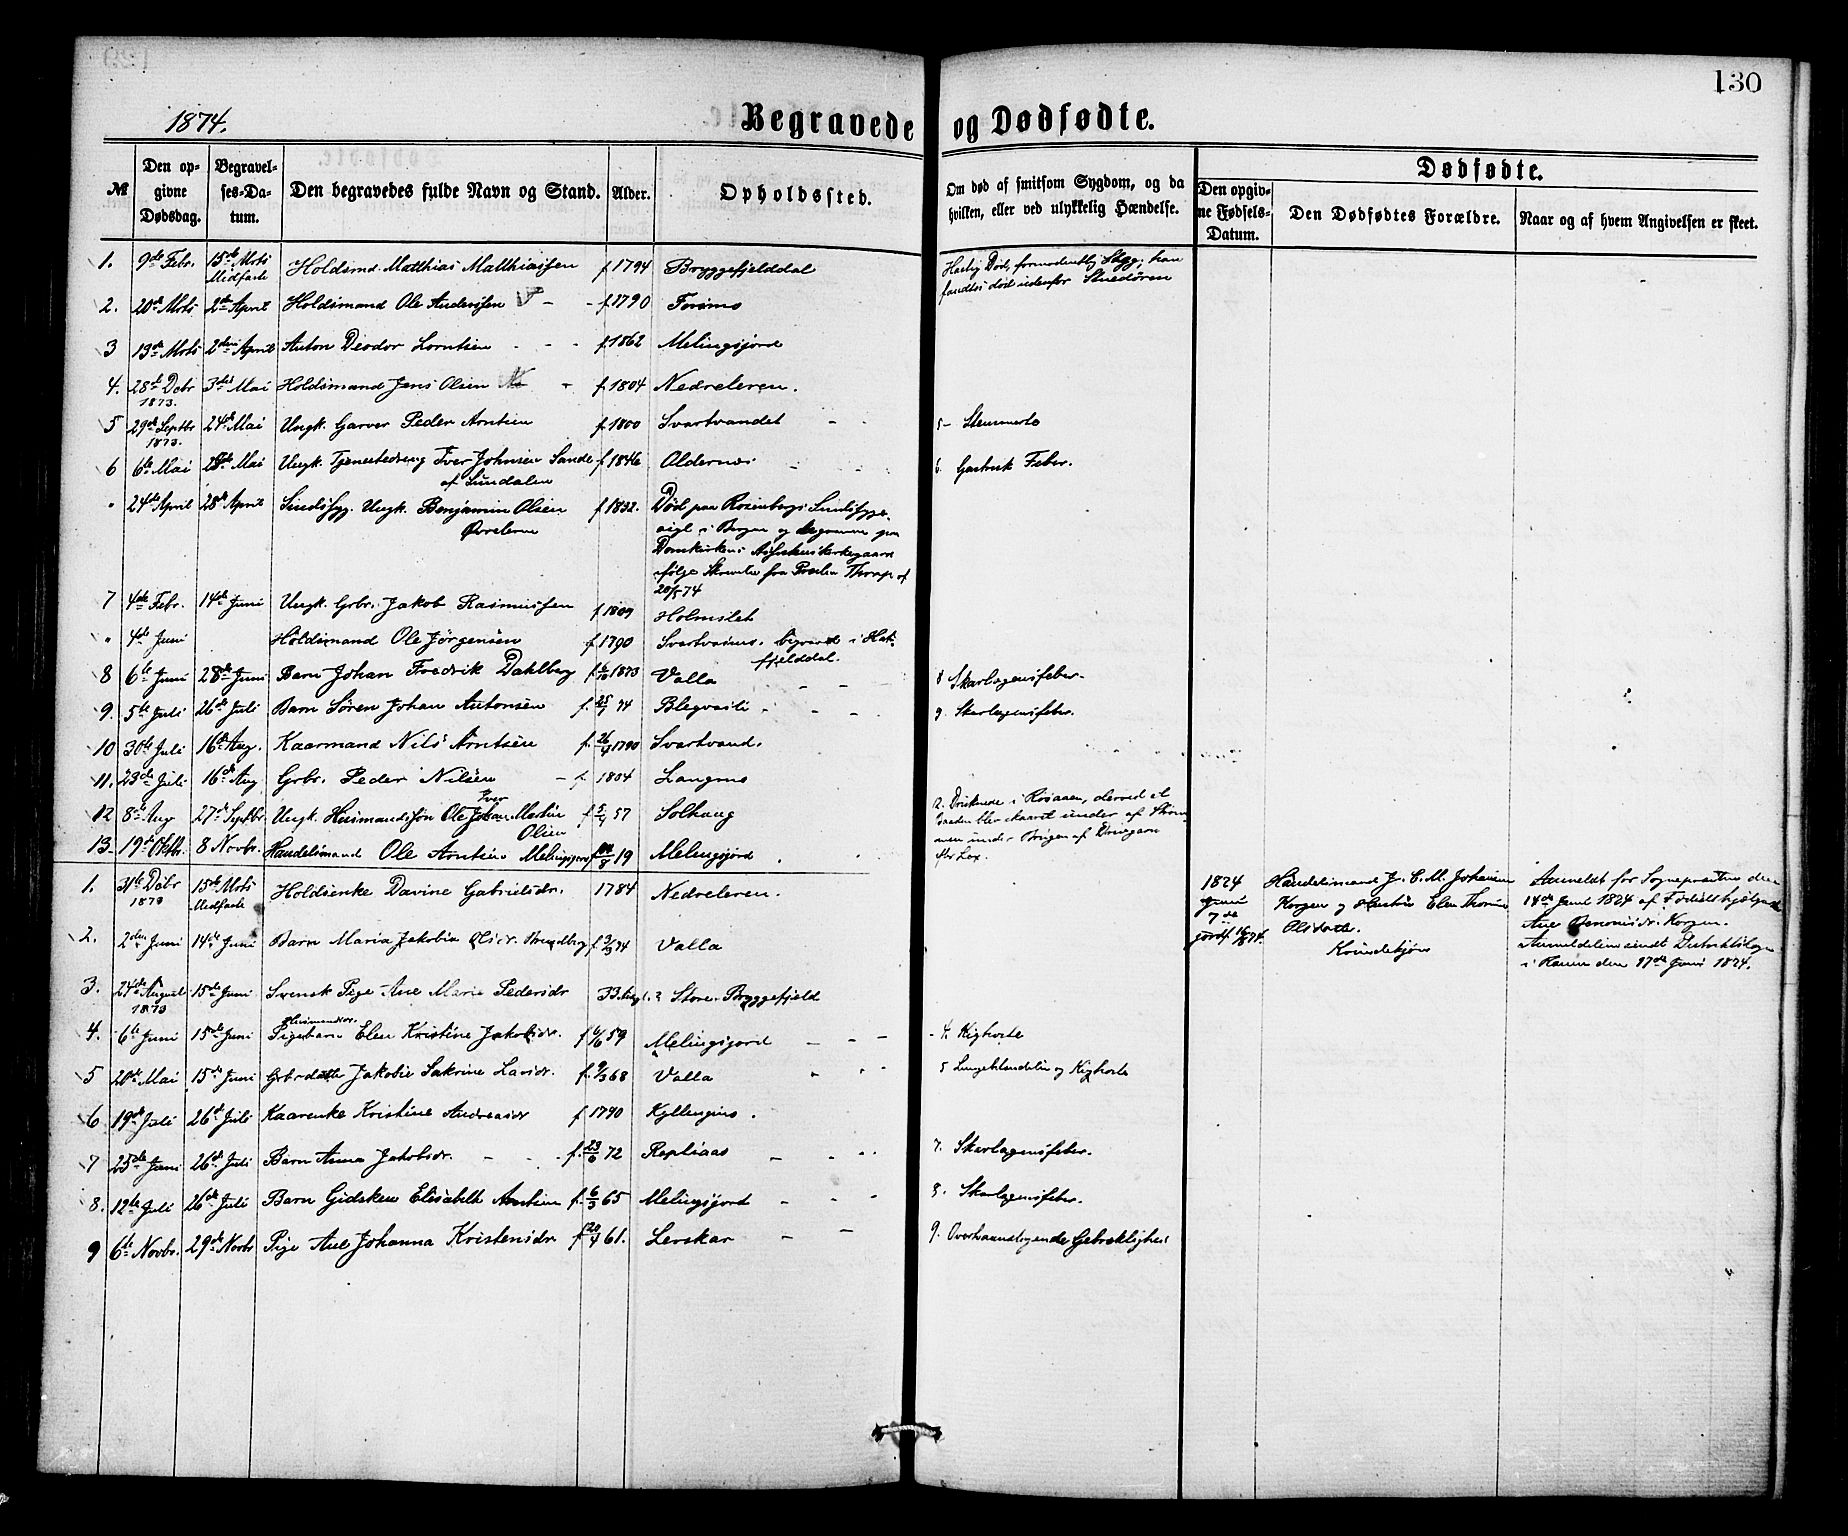 130
1874.
Begravede og Dødfødte.
№ Den opgivne Dødsdag. Begravelses-Datum. Den begravedes fulde Navn og Stand. Alder. Opholdssted. Om død af smitsom Sygdom, og da hvilken, eller ved ulykkelig Hændelse.
Dødfødte.
Den opgivne Fødsels-Datum. Den Dødfødtes Forældre. Naar og af hvem Angivelsen er skeet.
1. 9de Febr. 15de Mrts Midfaste Holdsmd. Matthias Matthiassen f 1794 Bryggefjelddal Hastig Død, formodentlig Slag; han
fandtes død udenfor Stuedøren
2. 20de Mrts 2den April Holdsmand Ole Andersen f. 1790 Forsmo
3 19de Mrts 2den April Anton Deodor Lorntsen f 1862 Melingsjord
4. 28de Dcbr 1873. 3die Mai Holdsmand Jens Olsen f. 1804 Nedreleren.
5 29de Septbr 1873. 24de Mai Ungk. Garver Peder Arntsen f. 1800 Svartvandet 5-
6 6te Mai 28de Mai Ungk. Tjenestedreng Iver Johnsen Sande f 1846 Aldernes 6. Gastrisk Feber.
af Sundalen
" 24de April 28de April Sindssyg. Ungk. Benjamin Olsen f 1832. Død paa Rosenbergs Sindssyge-
Øvreleren i Bergen og begraven paa
Domkirkens
følge Skrivelse fra af
20/5 74
7 4de Febr. 14de Juni Ungk. Grbr. Jakob Rasmussen f 1809 Holmslet
" 4de Juni Holdsmand Ole Jørgensen f. 1790 begravet i Hat-
fjelddal.
8 6te Juni 28de Juni Barn Johan Fredrik Dahlberg 1873 Valla 8 Skarlagensfeber.
9. 5te Juli 26de Juli Barn Søren Johan Antonsen f. 74 9. Skarlagensfeber.
10 30te Juli 16de Aug. Kaarmand Nils Arntsen f. 26/4 1790 Svartvand.
11. 23de Juli 16de Aug Grbr. Peder Nilsen f. 1804 Langmo
12 8de Aug 27de Septbr Ungk. Husmandssøn Ole Iver Johan Martin f 57 Solhaug 12. Druknede i Røsaaen, derved at
Olsen Baaden blev skaaret under af Strøm-
men under Brugen af Drivgarn
efter Lax.
13. 19de Oktbr. 8 Novbr. Handelsmand Ole Arntsen Melingsjord f 19 Melingsjord
1. 31te Dcbr 1873 15de Mrts Midfaste Holdsenke Davine Gabrielsdr. 1784 Nedreleren.
1874 Juni 7de Handelsmand J. C. M. Johansen
Korgen og Hustru Elen
Olsdatter.
Anmeldt for Sognepræsten den
14de Juni 1874 af Fødselshjælpersk
Ane Benonisdr. Korgen.
Anmeldelsen sendt Distriktslægen
i Ranen den 17de Juni 1874.
2. 2den Juni 14de Juni Barn Maria Jakobia Olsdr. f 74 Valla
3. 24de August 1873 15de Juni Svensk Pige Ane Marie Pedersdr 33 Store-Bryggefjeld
4. 6te Juni 15de Juni Husmandsdr. Pigebarn Elen Kristine Jakobsdr. f 59 Melingsjord 4. Kighoste
5 20de Mai 15de Juni Grbrdatter Jakobie Sakrine Larsdr. f. 9/3 68 Valla 5 Lungebetændelse og Kighoste
6 19de Juli 26de Juli Kaarenke Kristine Andreasdr f 1790
7 25de Juni 26de Juli Barn Anna Jakobsdr. f. 23/6 72 Repliaas 7. Skarlagensfeber.
8. 12te Juli 26de Juli Barn Gidsken Elisabeth Arntsen f. 6/3 65 Melingsjord 8. Skarlagensfeber.
9 6te Novbr. 29de Novbr Pige Ane Johanna Kristensdr. f 20/4 61. Lerskar 9. Overhaandtagende Gebreklighed